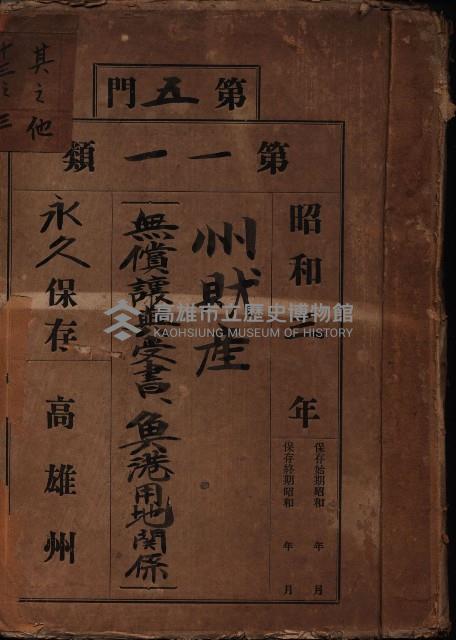 其之他
十三之三
第五門
第一一類
昭和二年
保存始期昭和 年 月
保存終期昭和 年 月
州財産
無償讓與受書、魚港用地関係
永久保存
高雄州
高雄市立歷史博物館
KAOHSIUNG MUSEUM OF HISTORY